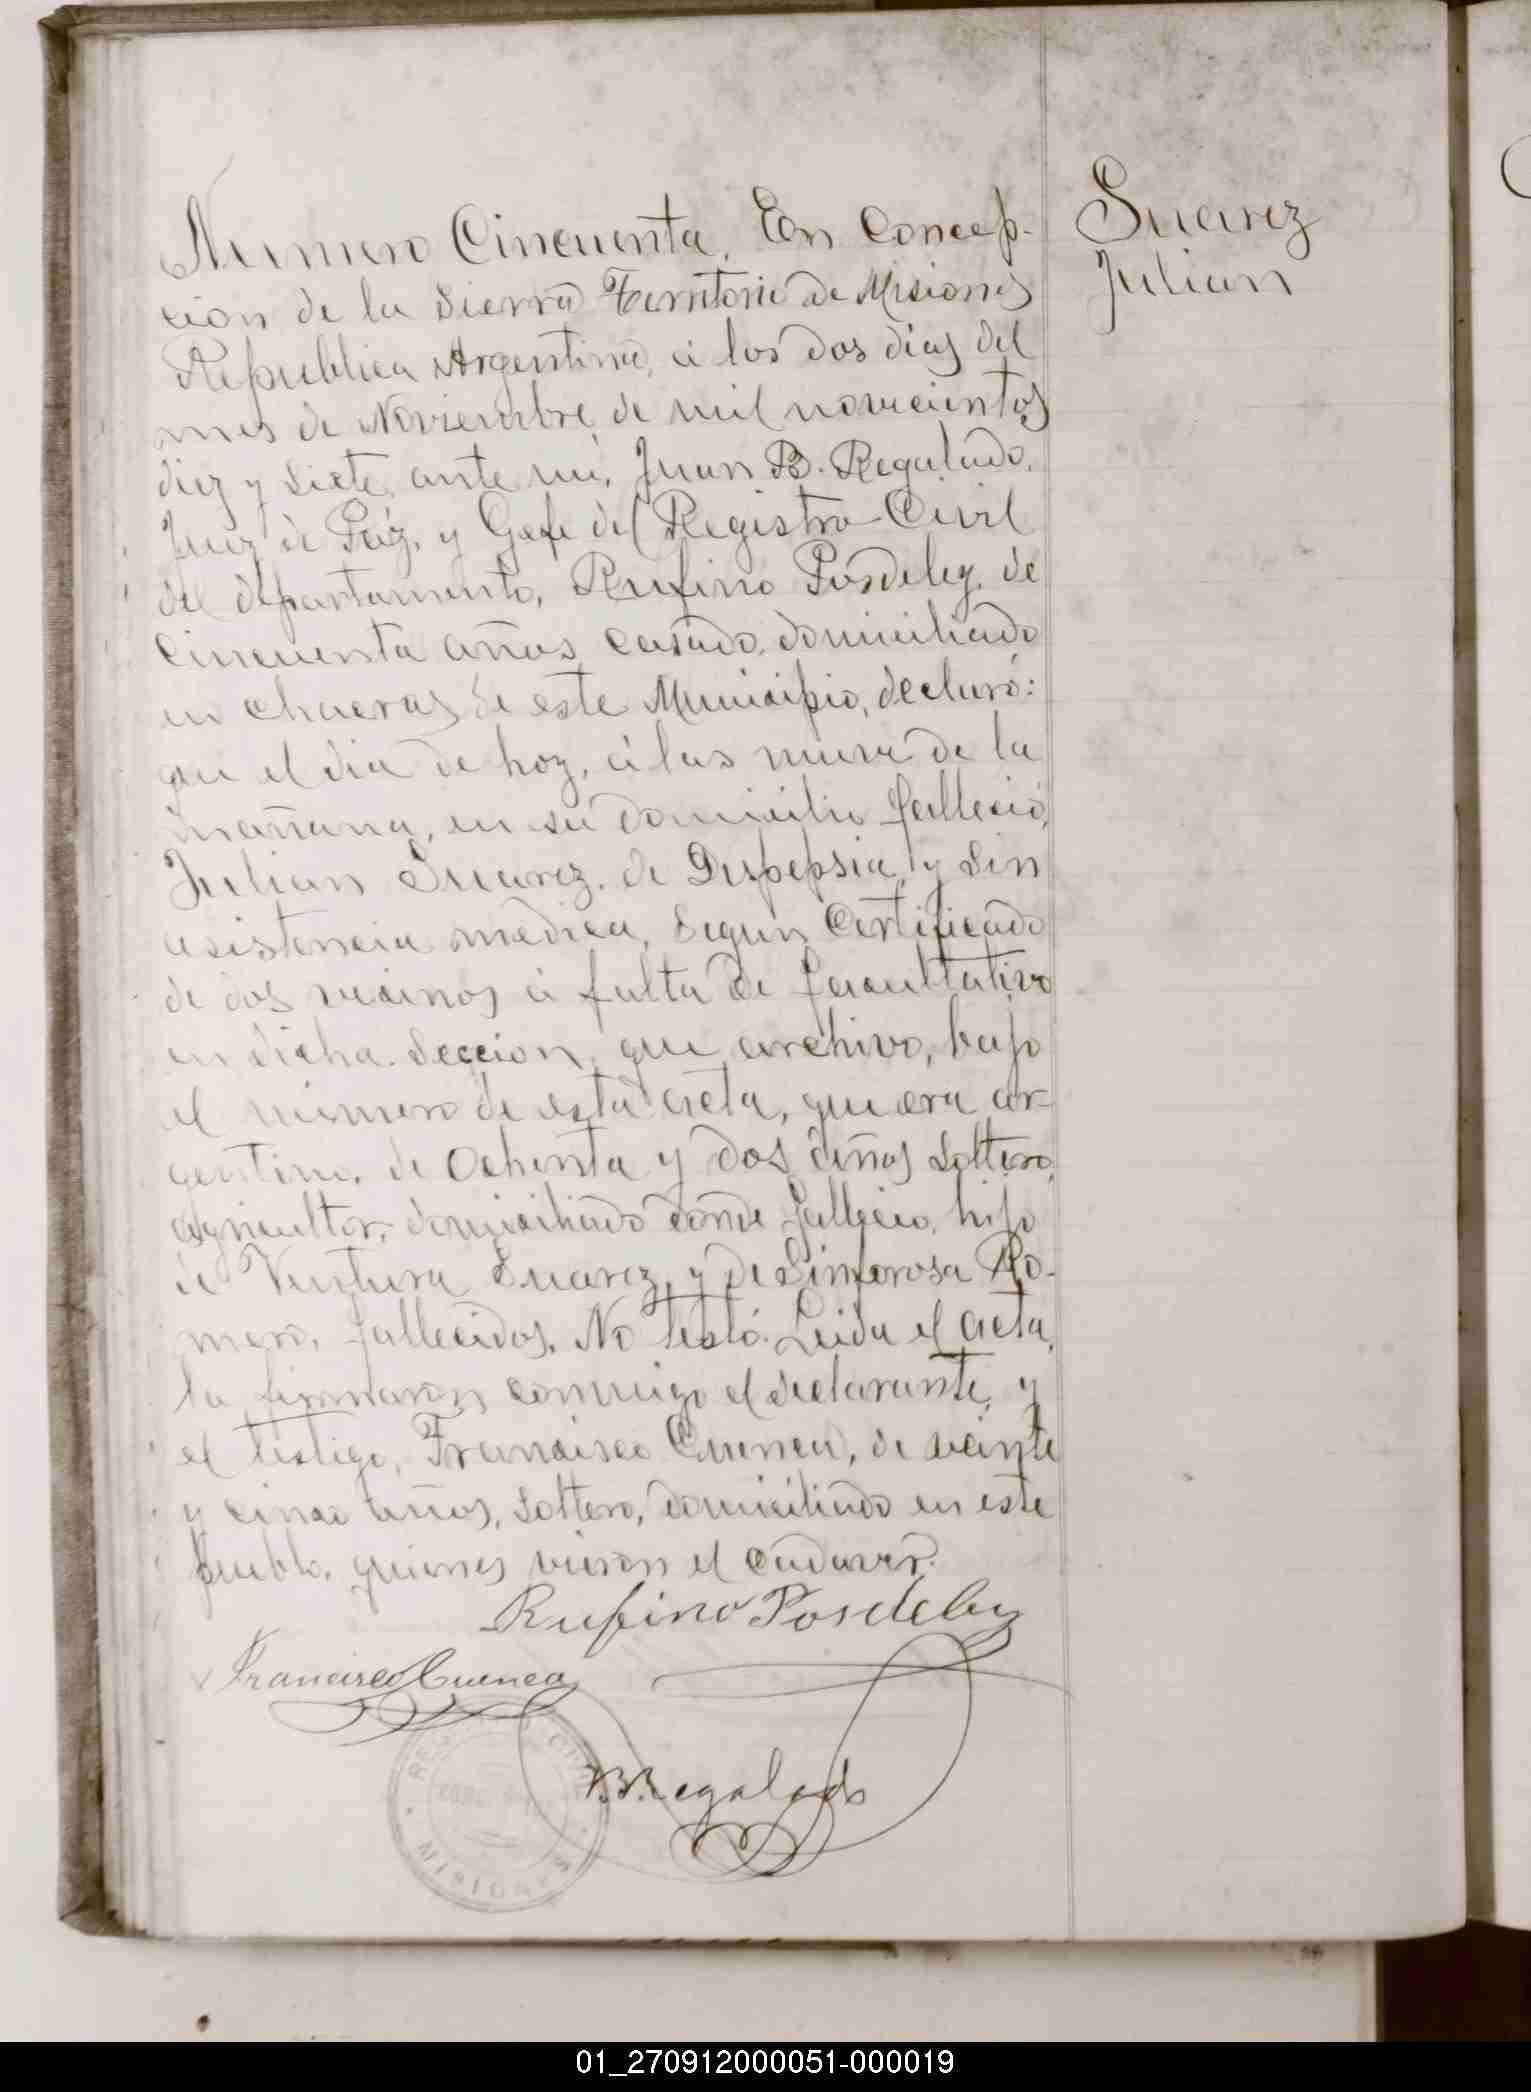 Numero Cincuenta, En Concep-
cion de la Sierra Territorio de Misiones
Republica Argentina, á los dos dias del
mes de Noviembre de mil novecientos
diez y siete, ante mi, Juan B. Regalado,
Juez de Páz, y Gefe del Registro Civil
del departamento, Rufino Posdeley, de
cincuenta años, casado, domiciliado
en chacras de este Municipio, declaró:
que el dia de hoy, á las nueve de la
mañana, en su domicilio falleció,
Julian Suarez, de Dispepsia, y sin
asistencia medica, segun Certificado
de dos vecinos á falta de facultativo
en dicha Seccion, que archivo, bajo
el numero de esta acta, que era ar-
gentino, de Ochenta y dos años, soltero,
agricultor, domiciliado donde falleció, hijo
de Ventura Suarez, y de Sinforosa Ro-
mero, fallecidos. No testó. Leida el acta,
la firmaron conmigo el declarante, y
el testigo, Francisco Cuenca, de veinte
y cinco años, soltero, domiciliado en este
pueblo, quienes vieron el cadaver.
Suarez
Julian
Rufino Posdeley
Francisco Cuenca
B. Regalado
MISIONES
01_270912000051-000019